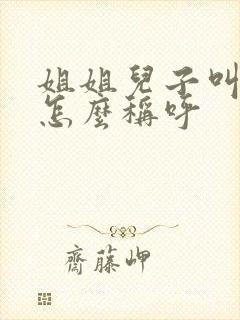 姐姐兒子叫
怎麼稱呼
齋藤岬